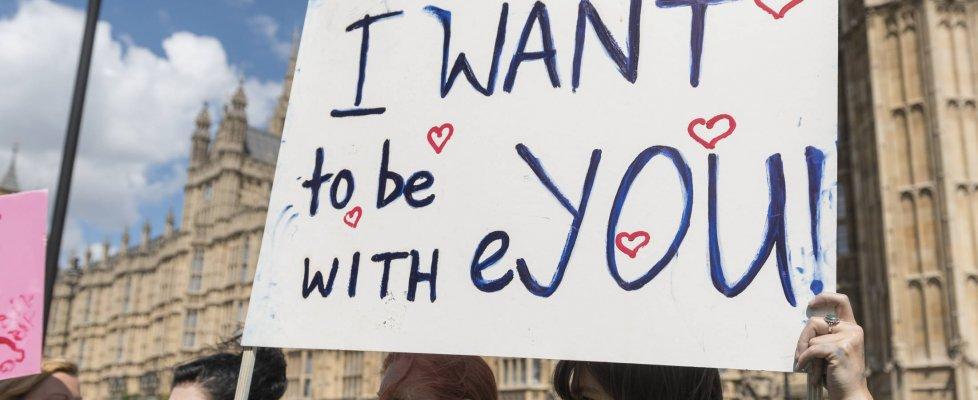 I WANT
to be
WITH eYOU!